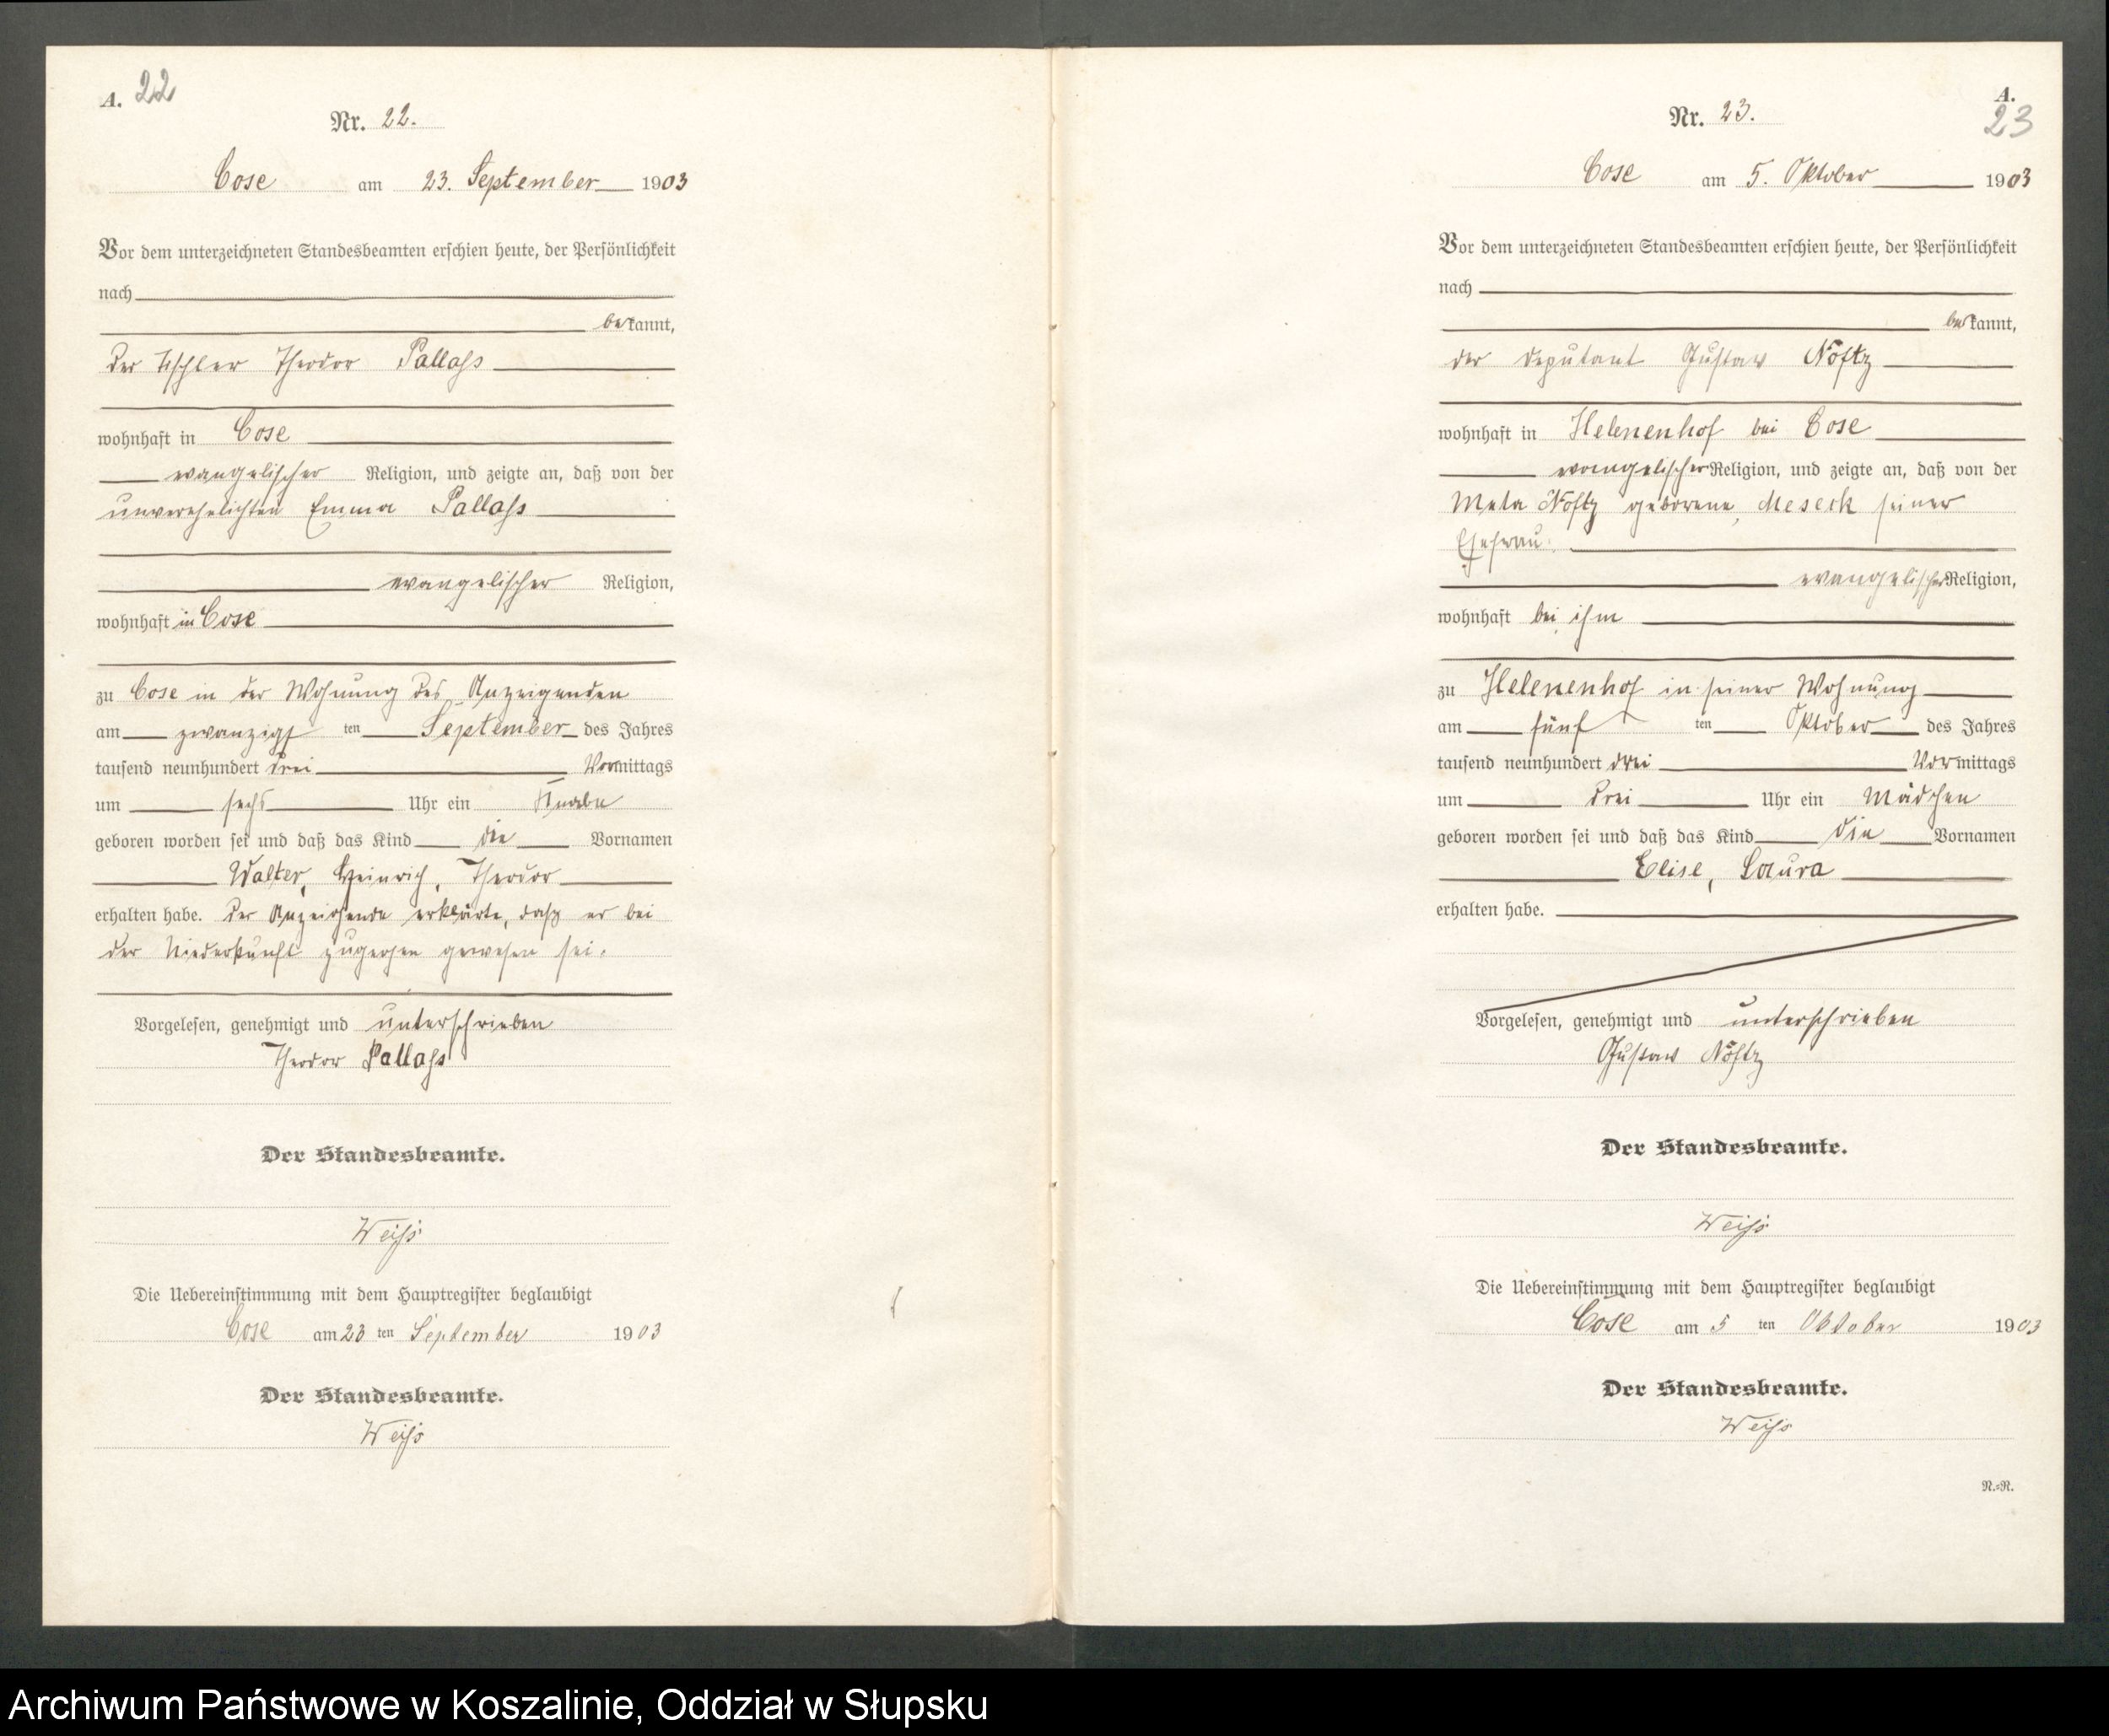 A. 22
Nr. 22.
Cose am 23. September 1903
Vor dem unterzeichneten Standesbeamten erschien heute, der Persönlichkeit
nach
bekannt,
der Tischler Theodor Pallaſs
wohnhaft in Cose
evangelischer Religion, und zeigte an, daß von der
unverehelichten Emma Pallaſs
evangelischer Religion,
wohnhaft in Cose
zu Cose in der Wohnung des Anzeigenden
am zwanzigſten September des Jahres
tausend neunhundert drei Vormittags
um sechs Uhr ein Knabe
geboren worden sei und daß das Kind die Vornamen
Walter, Heinrich, Theodor
erhalten habe. Der Anzeigende erklärte, daß er bei
der Niederkunft zugegen gewesen sei.
Vorgelesen, genehmigt und unterschrieben
Theodor Pallaſs
Der Standesbeamte.
Weiſs
Die Uebereinstimmung mit dem Hauptregister beglaubigt
Cose am 23 ten September 1903
Der Standesbeamte.
Weiſs
A.
23
Nr. 23.
Cose am 5. Oktober 1903
Vor dem unterzeichneten Standesbeamten erschien heute, der Persönlichkeit
nach
bekannt,
der Deputant Gustav Nöftz
wohnhaft in Helenenhof bei Cose
evangelischer Religion, und zeigte an, daß von der
Meta Nöftz geborene Meseck seiner
Ehefrau
evangelischer Religion,
wohnhaft bei ihm
zu Helenenhof in seiner Wohnung
am fünf ten Oktober des Jahres
tausend neunhundert drei Vormittags
um drei Uhr ein Mädchen
geboren worden sei und daß das Kind die Vornamen
Elise, Laura
erhalten habe.
Vorgelesen, genehmigt und unterschrieben
Gustav Nöftz
Der Standesbeamte.
Weiſs
Die Uebereinstimmung mit dem Hauptregister beglaubigt
Cose am 5 ten Oktober 1903
Der Standesbeamte.
Weiſs
N.=N.
Archiwum Państwowe w Koszalinie, Oddział w Słupsku